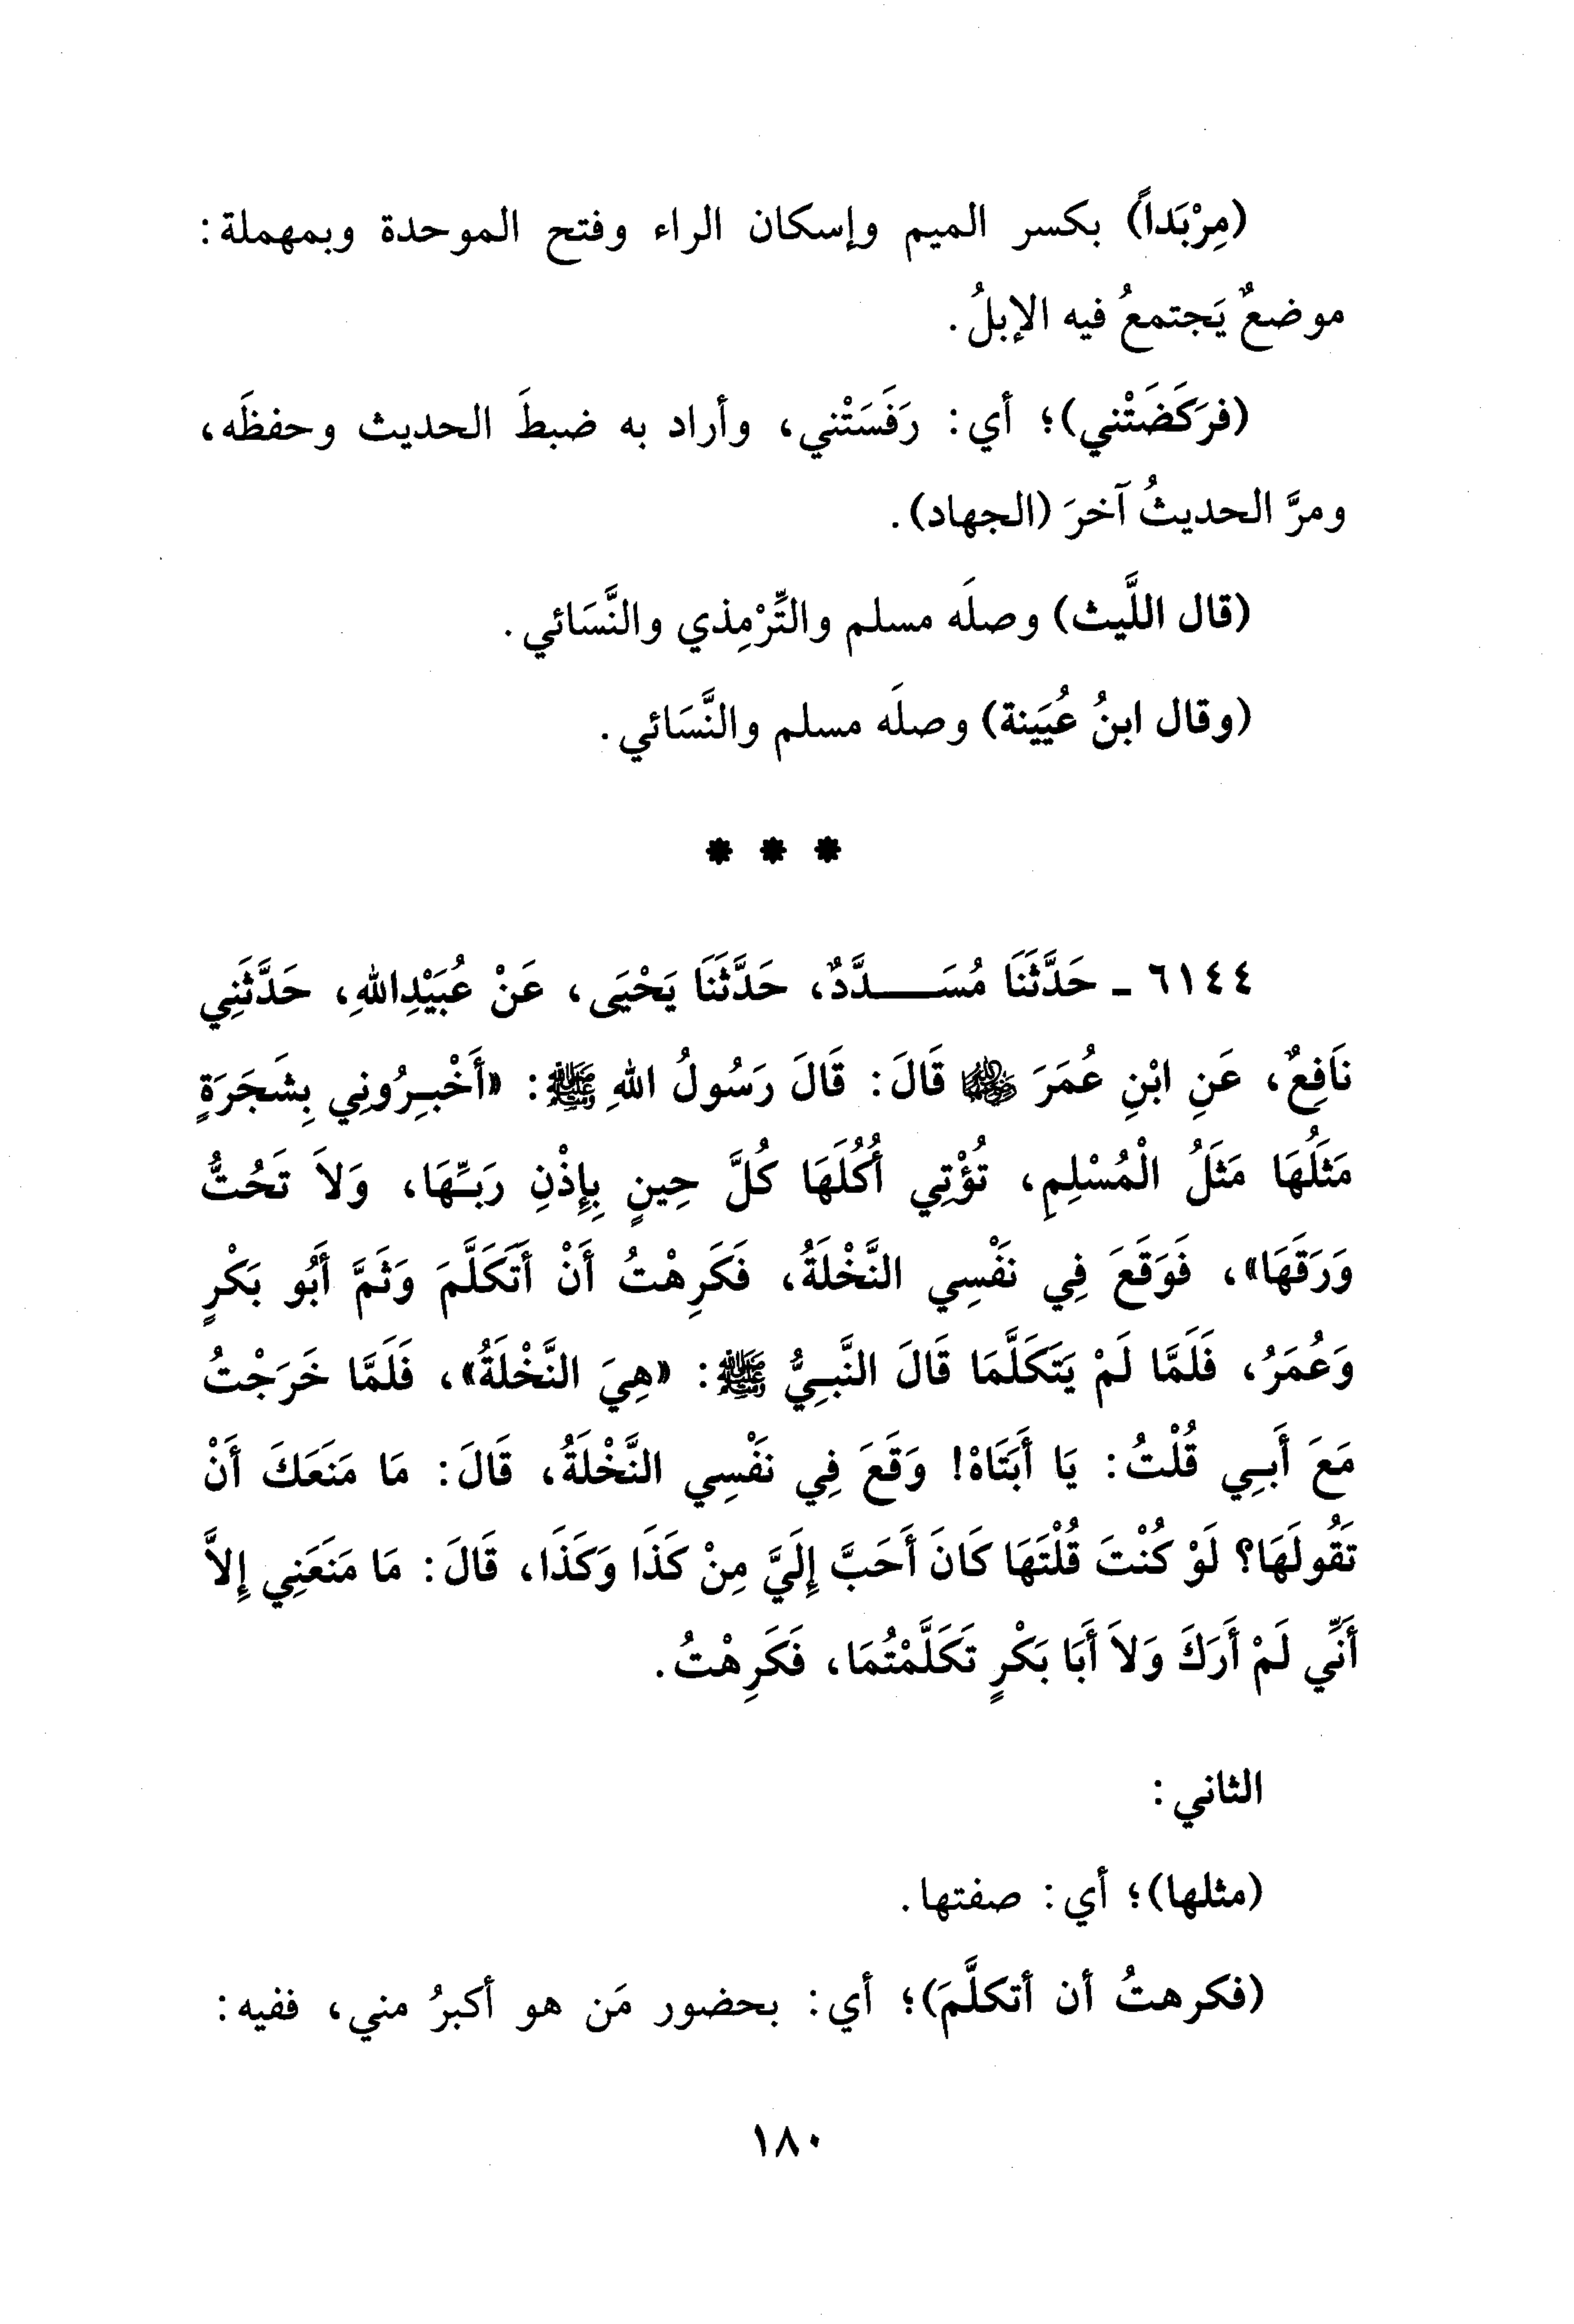 (مِرْبَداً) بكسر الميم وإسكان الراء وفتح الموحدة وبمهملة:
موضعٌ يَجتمعُ فيه الإبلُ.
(فرَكَضَتْني)؛ أي: رَفَسَتْني، وأراد به ضبطَ الحديث وحفظَه،
ومرَّ الحديثُ آخرَ (الجهاد).
(قال اللَّيث) وصلَه مسلم والتِّرْمِذي والنَّسَائي.
(وقال ابنُ عُيَينة) وصلَه مسلم والنَّسَائي.
* * *
٦١٤٤ - حَدَّثَنَا مُسَـــدَّدٌ، حَدَّثَنَا يَحْيَى، عَنْ عُبَيْدِاللهِ، حَدَّثَنِي
نَافِعٌ، عَنِ ابْنِ عُمَرَ رضي الله عنهما قَالَ: قَالَ رَسُولُ اللهِ ﷺ: «أَخْبِـرُونِي بِشَجَرَةٍ
مَثَلُهَا مَثَلُ الْمُسْلِمِ، تُؤْتِي أُكُلَهَا كُلَّ حِينٍ بِإِذْنِ رَبِّـهَا، وَلاَ تَحُتُّ
وَرَقَهَا»، فَوَقَعَ فِي نَفْسِي النَّخْلَةُ، فَكَرِهْتُ أَنْ أَتَكَلَّمَ وَثَمَّ أَبُو بَكْرٍ
وَعُمَرُ، فَلَمَّا لَمْ يَتَكَلَّمَا قَالَ النَّبـِيُّ ﷺ: «هِيَ النَّخْلَةُ»، فَلَمَّا خَرَجْتُ
مَعَ أَبـِي قُلْتُ: يَا أَبَتَاهْ! وَقَعَ فِي نَفْسِي النَّخْلَةُ، قَالَ: مَا مَنَعَكَ أَنْ
تَقُولَهَا؟ لَوْ كُنْتَ قُلْتَهَا كَانَ أَحَبَّ إِلَيَّ مِنْ كَذَا وَكَذَا، قَالَ: مَا مَنَعَنِي إِلاَّ
أَنِّي لَمْ أَرَكَ وَلاَ أَبَا بَكْرٍ تَكَلَّمْتُمَا، فَكَرِهْتُ.
الثاني:
(مثلها)؛ أي: صفتها.
(فكرهتُ أن أتكلَّمَ)؛ أي: بحضور مَن هو أكبرُ مني، ففيه:
١٨٠